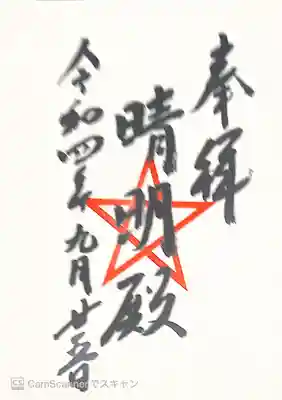 奉拝
晴明殿
令和四年九月廿五日
CS CamScannerでスキャン